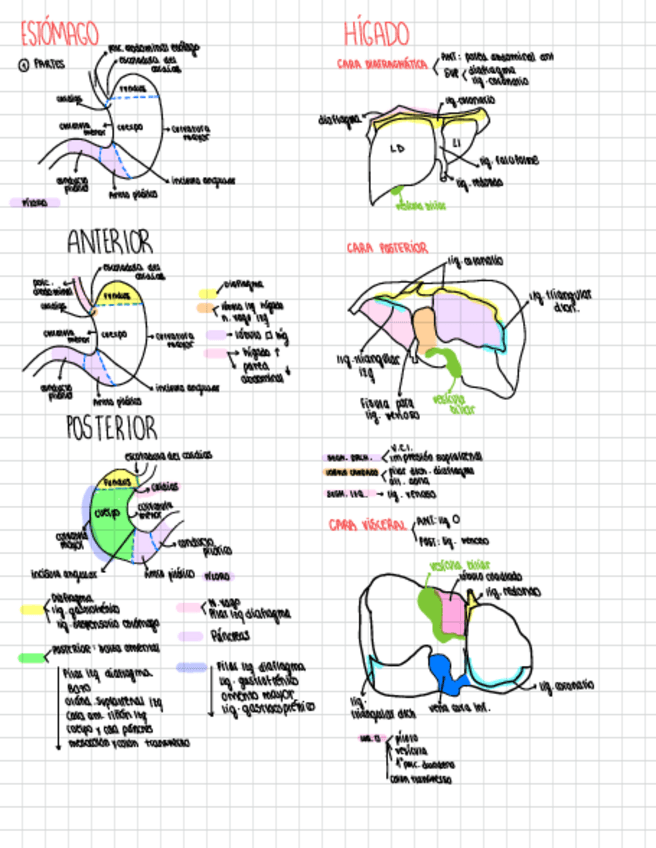 ESTÓMAGO
① PARTES
porc. abdominal esófago
escotadura del
cardias
Fundus
cardias
curvatura
menor
cuerpo
curvatura
mayor
conducto
pilórico
Antro pilórico
incisura angular
Píloro
ANTERIOR
escotadura del
cardias
porc.
abdominal
cardias
Fundus
curvatura
menor
cuerpo
curvatura
mayor
conducto
pilórico
Antro pilórico
incisura angular
Diafragma
lóbulo izq hígado
n. vago izq
lóbulo □ híg
hígado ↑
pared
abdominal ↓
POSTERIOR
escotadura del cardias
Fundus
cardias
cuerpo
curvatura
menor
curvatura
mayor
conducto
pilórico
incisura angular
Antro pilórico
Píloro
Diafragma
lig. gastrofrénico
lig. suspensorio estómago
POSTERIOR: bolsa omental
Pilar izq diafragma
Bazo
Gland. suprarrenal izq
cara ant. riñón izq
cuerpo y cola páncreas
mesocolon y colon transverso
N. vago
Pilar izq diafragma
Páncreas
Pilar izq diafragma
lig. gastrofrénico
omento mayor
lig. gastroesplénico
HÍGADO
CARA DIAFRAGMÁTICA
ANT: pared abdominal ant
SUP
diafragma
lig. coronario
lig. coronario
diafragma
LD
LI
lig. falciforme
lig. redondo
vesícula biliar
CARA POSTERIOR
lig. coronario
lig. triangular
dch.
lig. triangular
izq
Fisura para
lig. venoso
vesícula
biliar
V.C.I.
impresión suprarrenal
pilar dch. diafragma
lig. venoso
CARA VISCERAL
ANT: lig O
POST: lig. venoso
vesícula biliar
lóbulo cuadrado
lig. redondo
lig. coronario
lig.
triangular dch
vena cava inf.
píloro
vesícula
1ª porc. duodeno
colon transverso